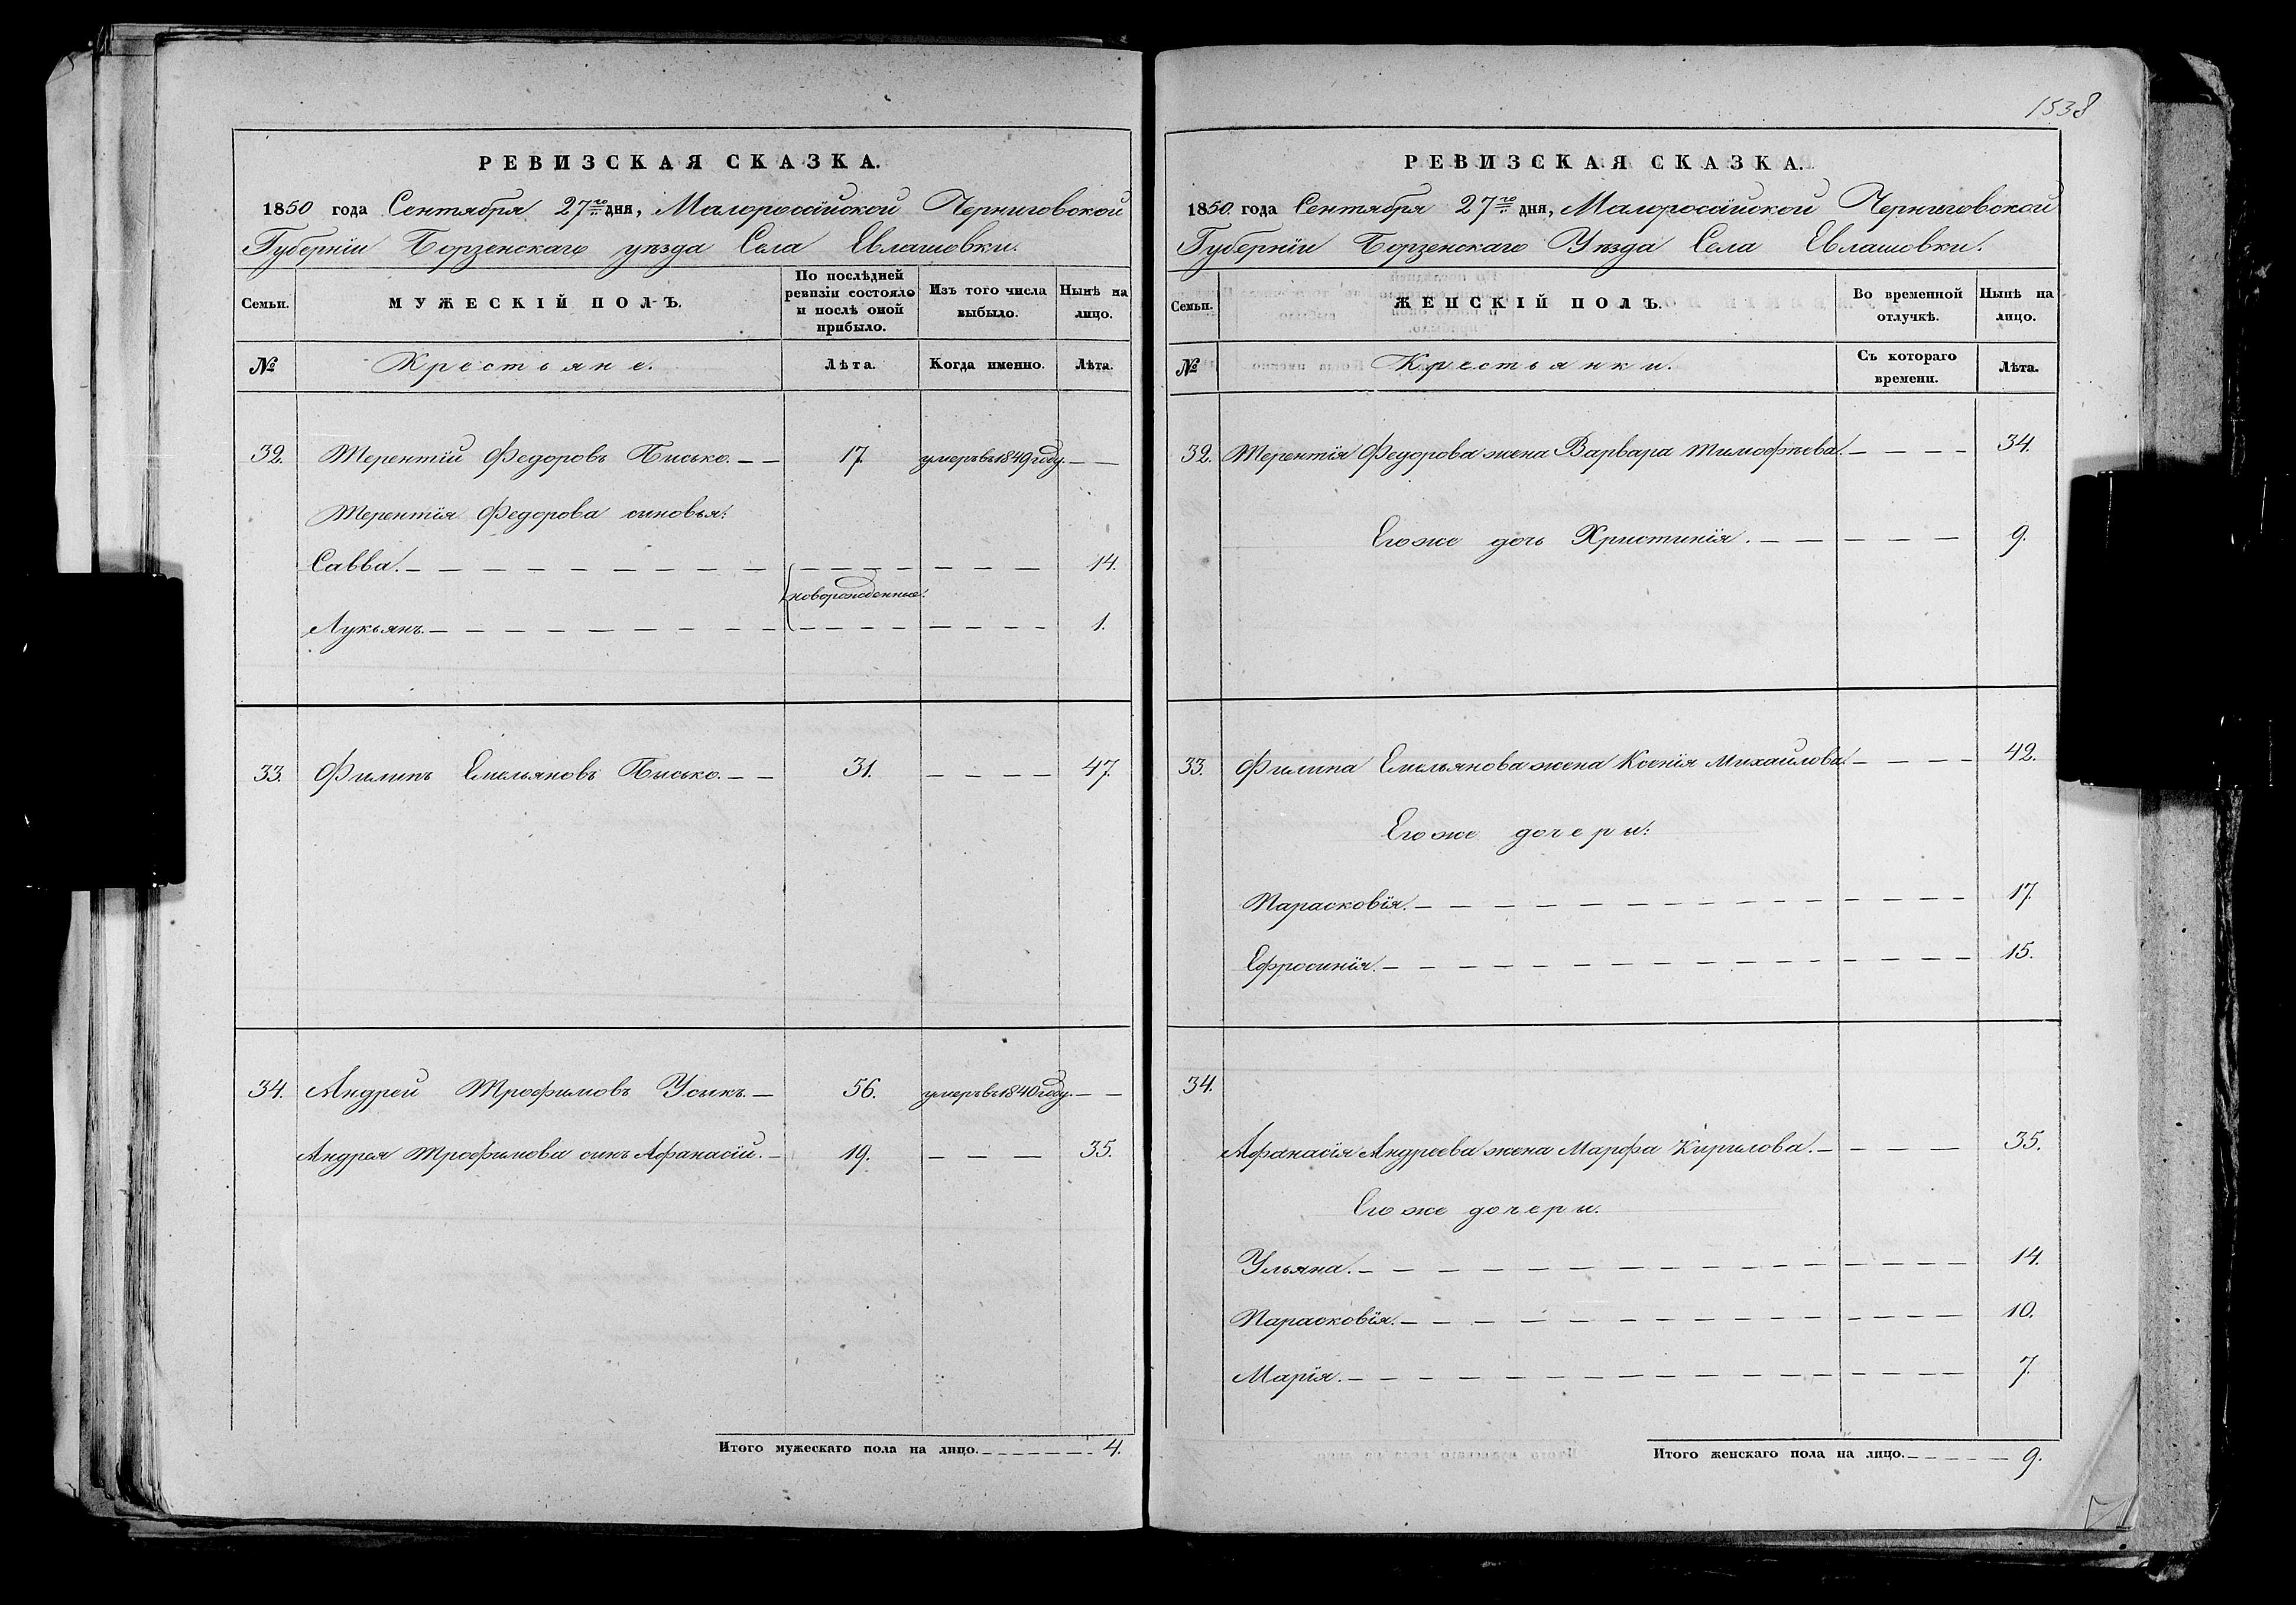 РЕВИЗСКАЯ СКАЗКА.
1850 года Сентября 27го дня, Малоросійской Черниговской
Губерніи Борзенскаго уѣзда Села Евлашовки.
Семьи. МУЖЕСКІЙ ПОЛЪ. По послѣдней ревизіи состояло и послѣ оной прибыло. Изъ того числа выбыло. Нынѣ на лицо.
№ Крестьяне. Лѣта. Когда именно. Лѣта.
32. Терентій Федоровъ Писько. — — 17. умеръ въ 1849 году. — —
Терентія Федорова сыновья:
Савва. — — — 14.
новорожденные.
Лукьянъ. — — — 1.
33. Филипъ Емельяновъ Писько. — — 31. — — — — 47.
34. Андрей Трофимовъ Усыкъ. — 56. умеръ въ 1840 году. — —
Андрея Трофимова сынъ Афанасій. — 19. — — — 35.
Итого мужескаго пола на лицо. 4.
1538
РЕВИЗСКАЯ СКАЗКА.
1850 года Сентября 27го дня, Малоросійской Черниговской
Губерніи Борзенскаго Уѣзда Села Евлашовки.
Семьи. ЖЕНСКІЙ ПОЛЪ. Во временной отлучкѣ. Нынѣ на лицо.
№ Крестьянки. Съ котораго времени. Лѣта.
32. Терентія Федорова жена Варвара Тимофѣева. — — — — 34.
Его же дочь Христинія. — — — — — 9.
33. Филипа Емельянова жена Ксенія Михайлова. — — — — 42.
Его же дочери:
Парасковія. — — — 17.
Ефросинія. — — — 15.
34.
Афанасія Андреева жена Марфа Кирилова. — — — — 35.
Его же дочери.
Ульяна. — — — 14.
Парасковія. — — — 10.
Марія. — — — 7.
Итого женскаго пола на лицо. 9.